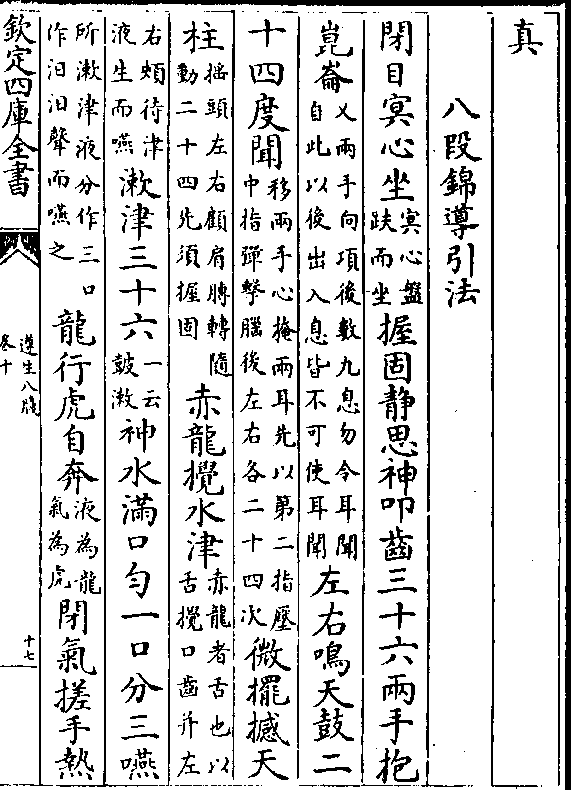 真
八段錦導引法
閉目冥心坐冥心盤趺而坐握固靜思神叩齒三十六兩手抱
崑崙乂兩手向項後數九息勿令耳聞自此以後出入息皆不可使耳聞左右鳴天鼓二
十四度聞移兩手心掩兩耳先以第二指壓中指彈擊腦後左右各二十四次微擺撼天
柱揺頭左右顧肩膊轉隨動二十四先須握固赤龍攪水津赤龍者舌也以舌攪口齒并左
右頰待津液生而嚥漱津三十六一云鼓漱神水滿口勻一口分三嚥
所漱津液分作三口作汩汩聲而嚥之龍行虎自奔液為龍氣為虎閉氣搓手熱
欽定四庫全書
遵生八牋
卷十
十七